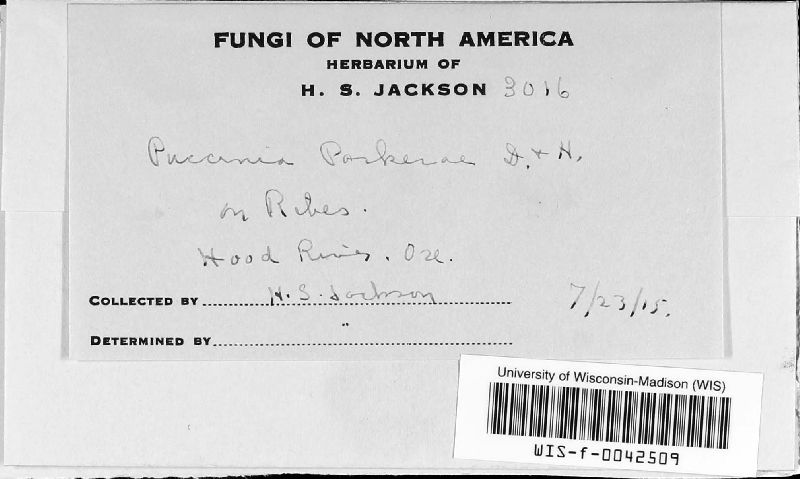 FUNGI OF NORTH AMERICA
HERBARIUM OF
H. S. JACKSON 3016
Puccinia Parkerae D. & H.
on Ribes.
Hood River. Ore.
COLLECTED BY H. S. Jackson 7/23/15.
DETERMINED BY "
University of Wisconsin-Madison (WIS)
WIS-f-0042509